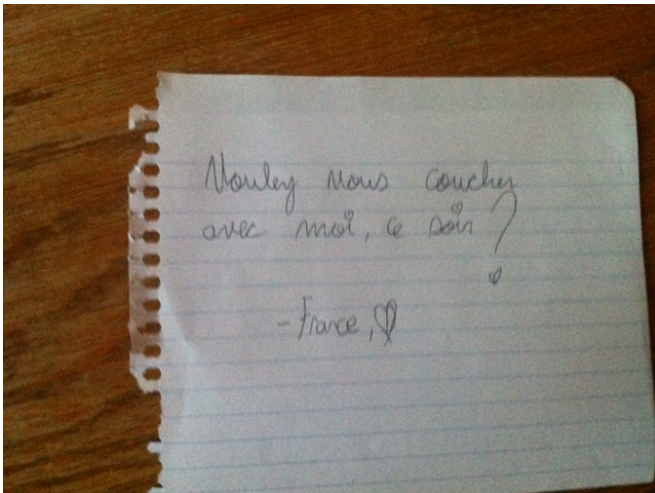 Voulez vous coucher
avec moi, ce soir ?
- France, ♡